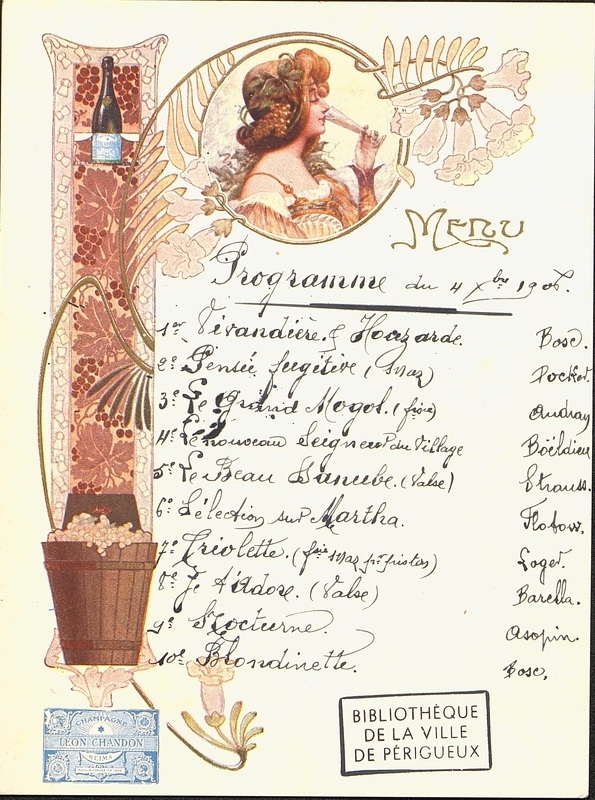 MENU
Programme du 4 Xbre 1906.
1er Vivandière & Houzarde. Bosc.
2e Pensée fugitive (Maz)
3e Le Grand Mogol. (fsie) Audran
4e Le nouveau Seigneur du Village Boëldieu
5e Le Beau Danube. (Valse) Strauss.
6e Sélection sur Martha. Flotow.
7e Triolette. (fsie maz pr pistos) Loger.
8e Je t'Adore. (Valse) Barella.
9e Nocturne. Asopin.
10e Blondinette. Bosc.
CHAMPAGNE
LÉON CHANDON
REIMS
BIBLIOTHÈQUE
DE LA VILLE
DE PÉRIGUEUX